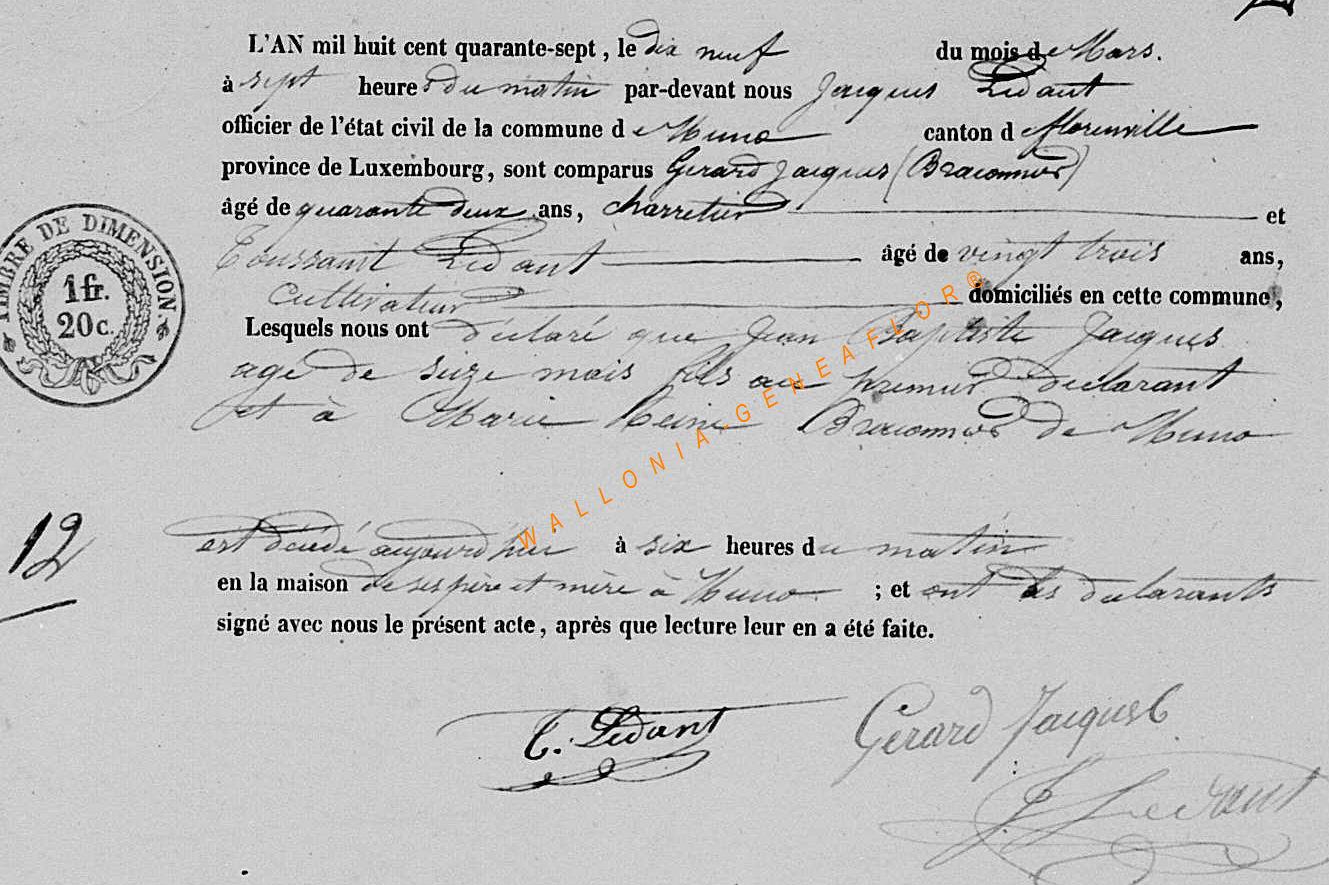 L'AN mil huit cent quarante-sept, le dix neuf du mois de Mars.
à sept heures du matin par-devant nous Jacques Ledant
officier de l'état civil de la commune de Muno canton de florenville
province de Luxembourg, sont comparus Gerard Jacques (Braconnier)
âgé de quarante deux ans, charretier et
Toussaint Ledant âgé de vingt trois ans,
Cultivateur domiciliés en cette commune,
Lesquels nous ont declaré que Jean Baptiste Jacques
age de seize mois fils au premier declarant
et à Marie Braconnier de Muno
12
est décédé aujourd'hui à six heures du matin
en la maison de ses pere et mère à Muno ; et ont les declarants
signé avec nous le présent acte, après que lecture leur en a été faite.
T. Ledant Gerard Jacques
J Ledant
TIMBRE DE DIMENSION.
1 fr.
20 c.
WALLONIA-GENEAFLOR®